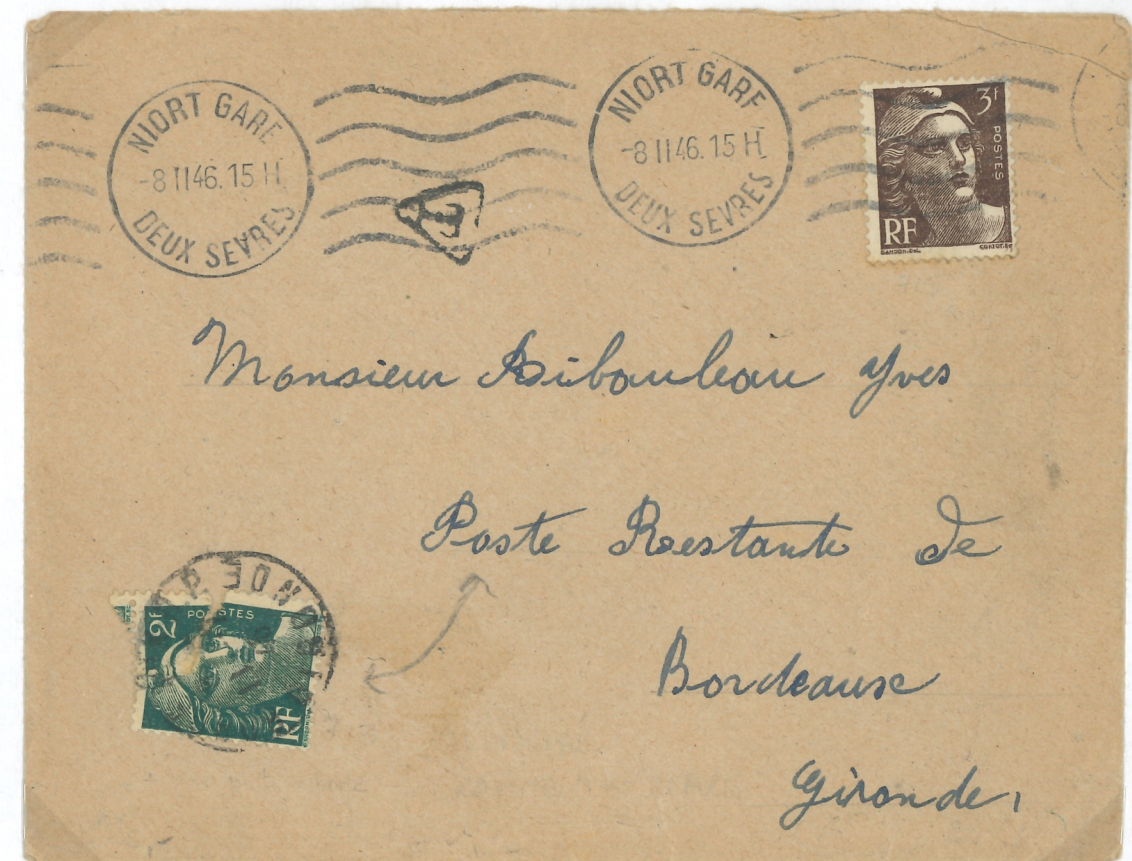 NIORT GARE
-8 II 46. 15 H
DEUX SEVRES
T
NIORT GARE
-8 II 46. 15 H
DEUX SEVRES
3f
POSTES
RF
GANDON.DEL
CORTOT.SC
Monsieur Ribouleau Yves
Poste Restante de
Bordeaux
Gironde,
2f
POSTES
RF